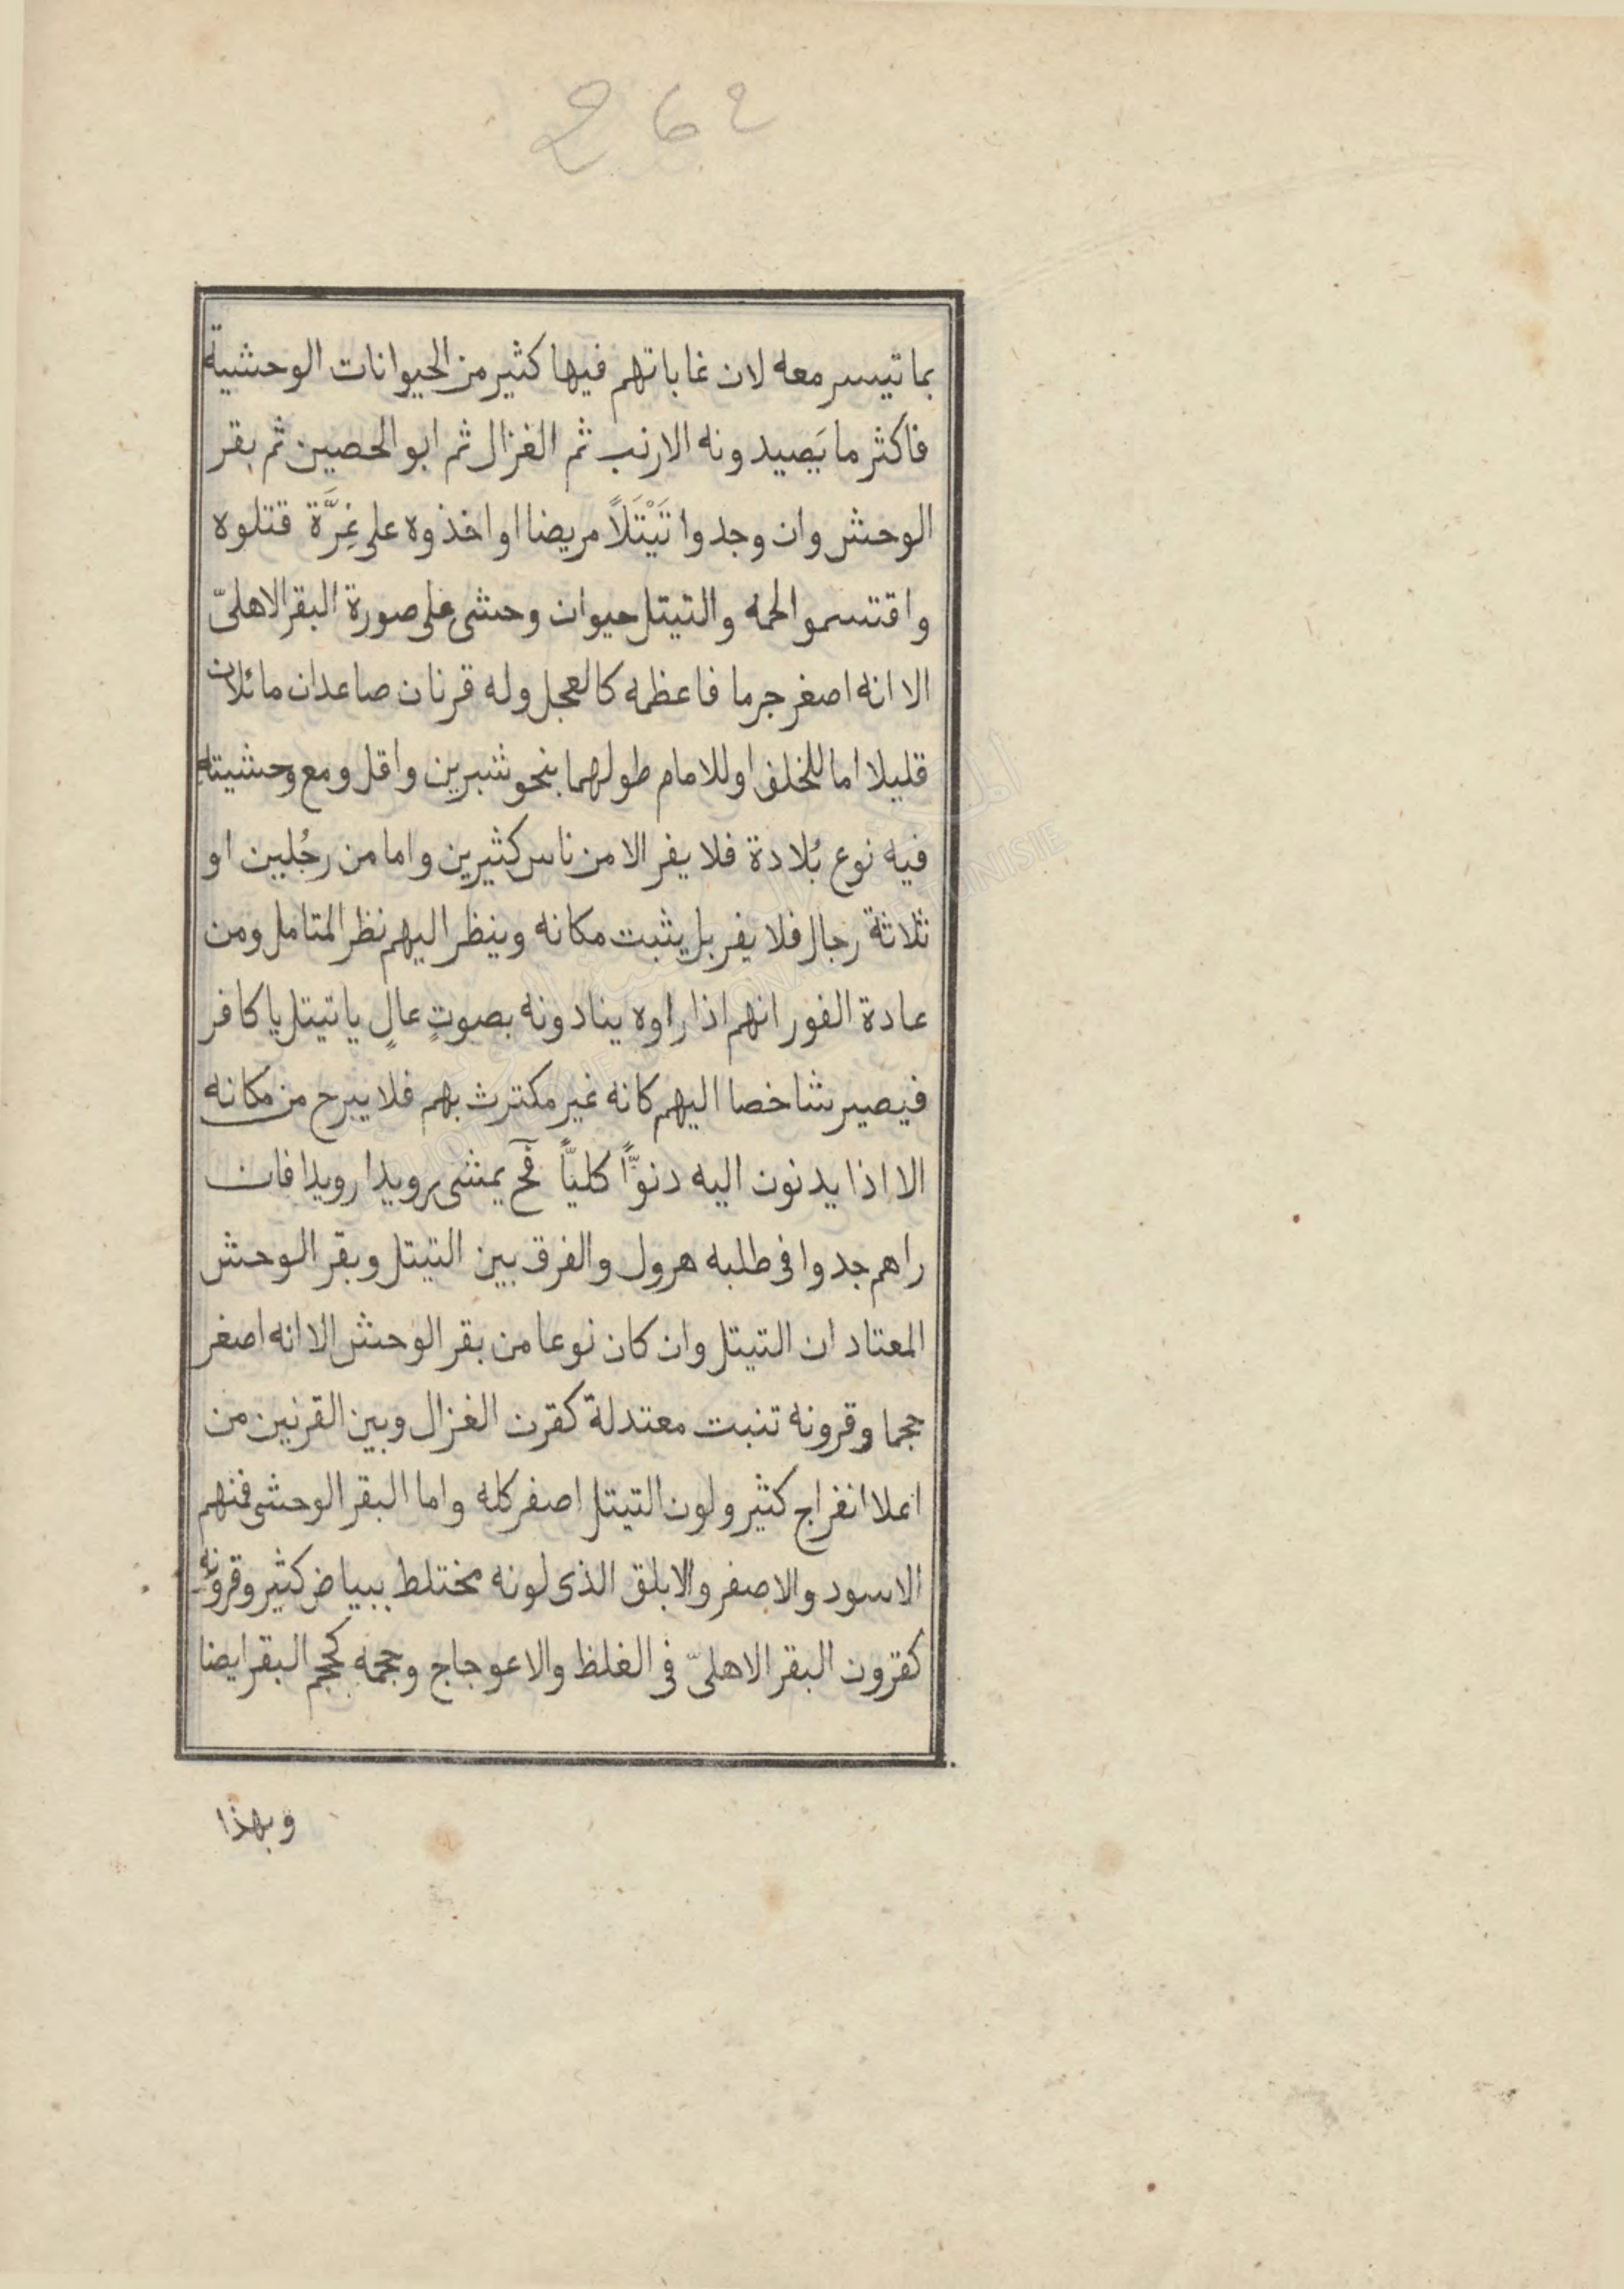 262
بما تيسر معه لان غاباتهم فيها كثير من الحيوانات الوحشية
فاكثر ما يَصيدونه الارنب ثم الغزال ثم ابو الحصين ثم بقر
الوحش وان وجدوا تَيْتَلاً مريضا او اخذوه على غِرَّة قتلوه
واقتسموا لحمه والتيتل حيوان وحشى على صورة البقر الاهلىّ
الا انه اصغر جرما فاعظمه كالعجل وله قرنان صاعدان مائلان
قليلا اما للخلف او للامام طولهما بنحو شبرين واقل ومع وحشيته
فيه نوع بُلادة فلا يفر الا من ناس كثيرين واما من رجُلين او
ثلاثة رجال فلا يفر بل يثبت مكانه وينظر اليهم نظر المتامل ومن
عادة الفور انهم اذا راوه ينادونه بصوتٍ عالٍ يا تيتل يا كافر
فيصير شاخصا اليهم كانه غير مكترث بهم فلا يبرح من مكانه
الا اذا يدنون اليه دنوًّا كليًّا فحٓ يمشى رويدا رويدا فان
راهم جدوا فى طلبه هرول والفرق بين التيتل وبقر الوحش
المعتاد ان التيتل وان كان نوعا من بقر الوحش الا انه اصغر
حجما وقرونه تنبت معتدلة كقرن الغزال وبين القرنين من
اعلا انفراج كثير ولون التيتل اصفر كله واما البقر الوحشى فمنهم
الاسود والاصفر والابلق الذى لونه مختلط ببياض كثير وقرونه
كقرون البقر الاهلىّ فى الغلظ والاعوجاج وحجمه كحجم البقر ايضا
وبهذا